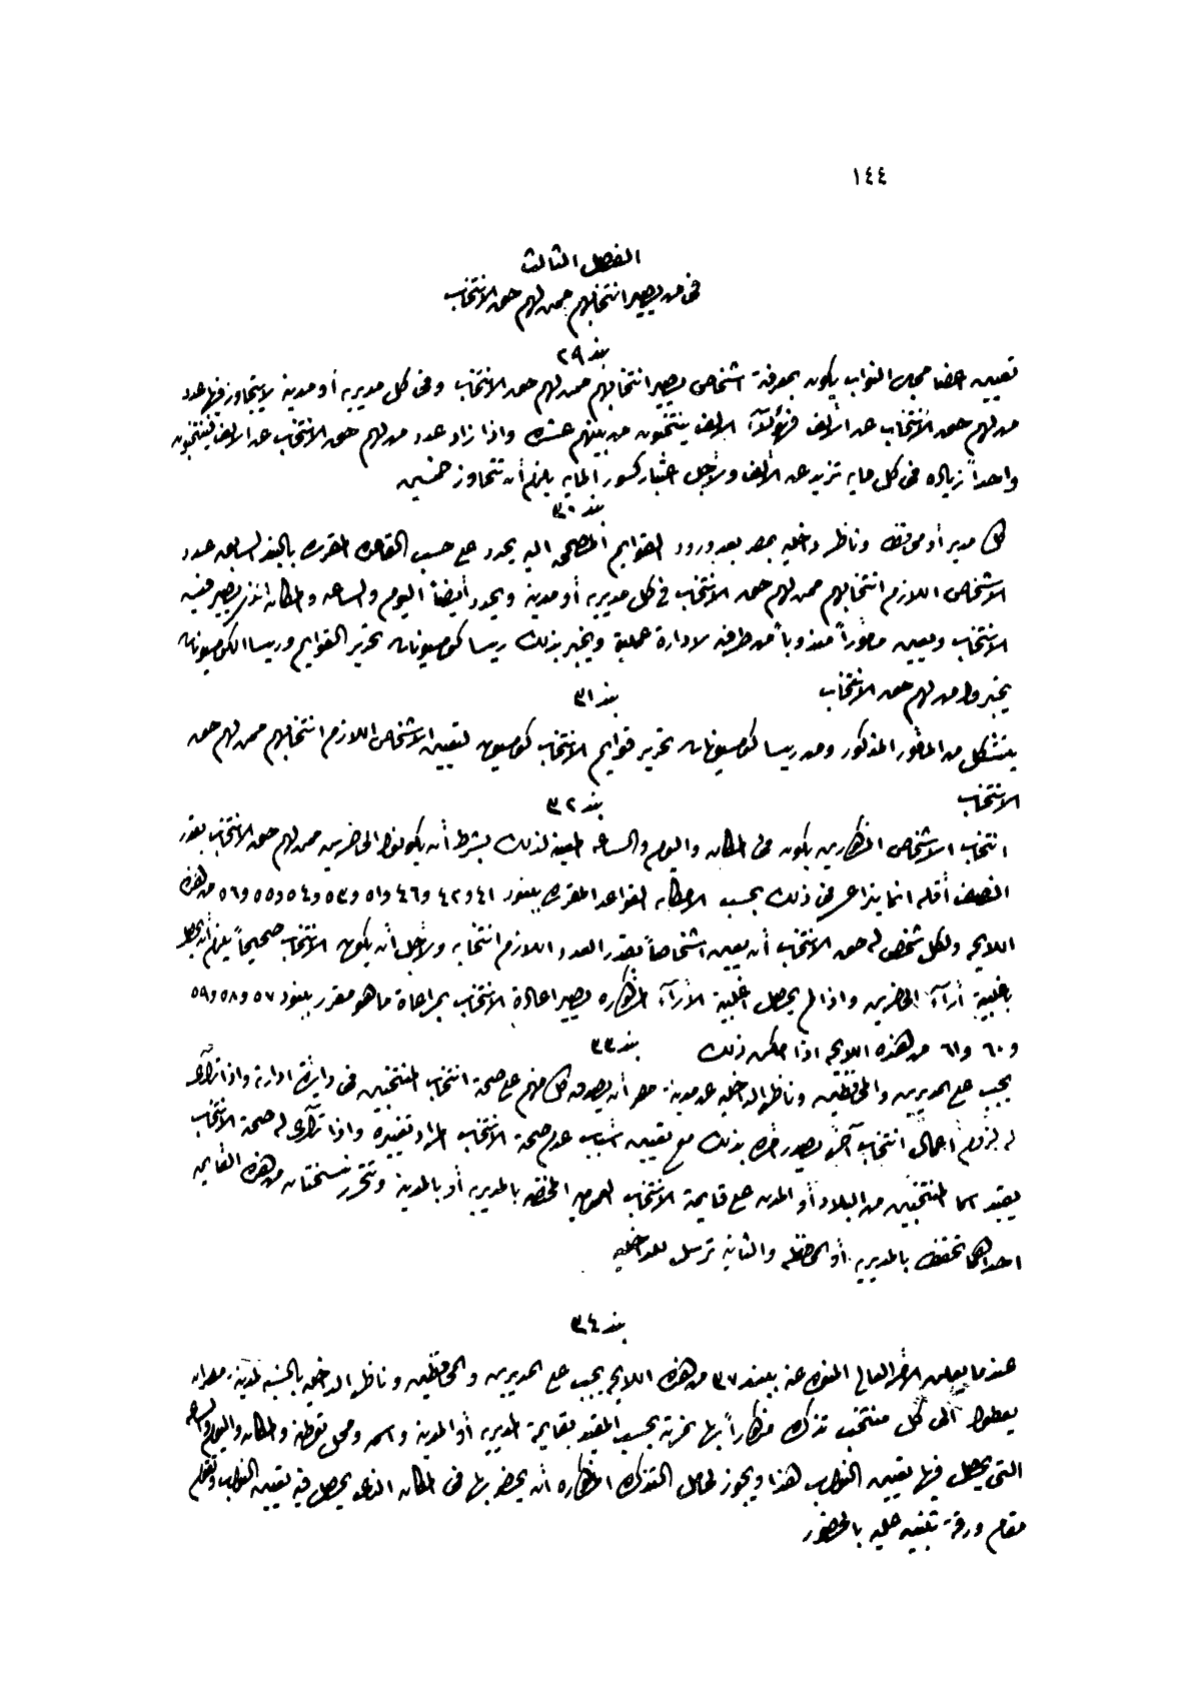 ١٤٤
الفصل الثالث
فى من يصير انتخابهم ممن لهم حق الانتخاب
بند ٢٩
تعيين اعضا مجلس النواب يكون بمعرفة اشخاص يصير انتخابهم ممن لهم حق الانتخاب وفى كل مديريه أو مدينة لايتجاوز فيها عدد
من لهم حق الانتخاب عن ألف فهؤلاء الالف ينتخبون من بينهم عشرة واذا زاد عدد من لهم حق الانتخاب عن الالف فينتخبون
واحداً زياده فى كل مايه تزيد عن الألف ولأجل اعتبار كسور المايه يلزم أن تتجاوز خمسين
بند ٣٠
كل مدير أو محافظ وناظر داخليه بمصر بعد ورود القوايم المصححه اليه يحدد على حسب القاعده المقرره بالبند السابق عدد
الاشخاص اللازم انتخابهم ممن لهم حق الانتخاب فى كل مديريه أو مدينة ويحدد أيضاً اليوم والساعه والمكان الذى يصير فيه
الانتخاب ويعين مأموراً مندوباً من طرفه لادارة عملية ويخبر بذلك ريسا كومسيونات تحرير القوايم وريسا الكومسيونات
يخبروا من لهم حق الانتخاب
بند ٣١
يتشكل من المأمور المذكور ومن ريسا كومسيونات تحرير قوايم الانتخاب كومسيون لتعيين الاشخاص اللازم انتخابهم ممن لهم حق
الانتخاب
بند ٣٢
انتخاب الاشخاص المذكورين يكون فى المكان واليوم والساعه المعينة لذلك بشرط أن يكونوا الحاضرين ممن لهم حق الانتخاب بقدر
النصف أقله انما يتراعى فى ذلك بحسب الامكان القواعد المقرره ببنود ٤١ و٤٢ و٤٦ و٥١ و٥٣ و٥٤ و٥٥ و٥٦ من هذه
اللايحه ولكل شخص له حق الانتخاب أن يعين اشخاصاً بقدر العدد اللازم انتخابه ولأجل أن يكون الانتخاب صحيحاً يلزم أن يحصل
باغلبية أرآء الحاضرين واذا لم يحصل اغلبية الأرآء المذكوره يصير اعادة الانتخاب بمراعاة ما هو مقرر ببنود ٥٧ و٥٨ و٥٩
و٦٠ و٦١ من هذه اللايحه اذا امكن ذلك
بند ٣٣
يجب على المديرين والمحافظين وناظر الداخليه عن مدينة مصر أن يصدق كل منهم على صحة انتخاب المنتخبين فى دايرة ادارته واذا تراآى
له لزوم اعمال انتخاب آخر يصدر أمره بذلك مع تعيين اسباب عدم صحة الانتخاب المراد تغييره واذا تراآى له صحة الانتخاب
يقيد اسما المنتخبين من البلاد أو المدن على قايمة الانتخاب العموميه المختصه بالمديريه أو بالمدينة وتتحرر نسختان من هذه القايمه
احداهما تحفظ بالمديريه أو المحافظه والثانية ترسل للداخليه
بند ٣٤
عندما يعلن الأمر العالى المنوه عنه ببند ٣٧ من هذه اللايحه يجب على المديرين والمحافظين وناظر الداخليه بالنسبه لمدينة مصر ان
يعطوا الى كل منتخب تذكره مذكوراً بها نمرته بحسب المقيد بقايمة المديريه أو المدينة واسمه ومحل توطنه والمكان واليوم والساعه
التى يحصل فيها تعيين النواب هذا ويجوز لحامل التذكره المذكوره أن يحضر بها فى المكان الذى يحصل فيه تعيين النواب وتقوم
مقام ورقة تنبيه عليه بالحضور